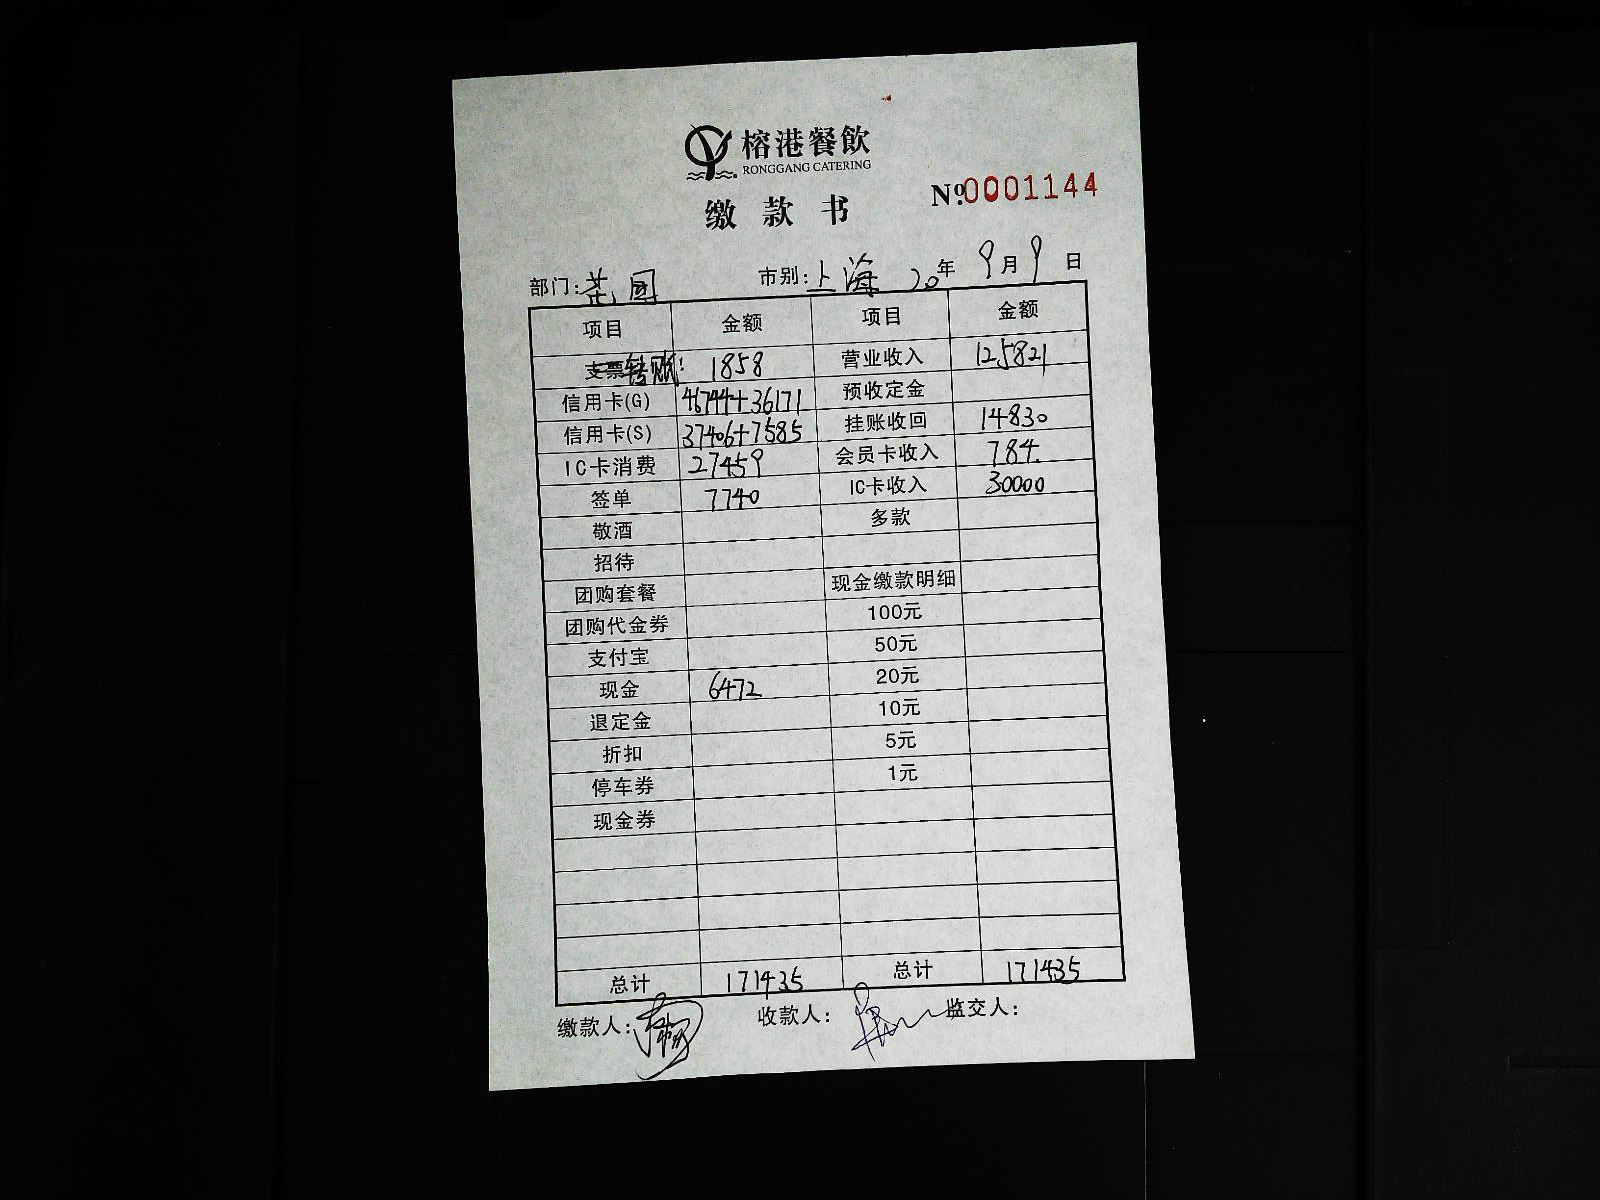 榕港餐飲
RONGGANG CATERING
缴款书
№0001144
部门: 市别:上海 20年9月9日
项目 金额 项目 金额
支票转账: 1858 营业收入 125821
信用卡(G) 46744+36171 预收定金
信用卡(S) 37406+7585 挂账收回 14830
IC卡消费 27459 会员卡收入 784.
签单 7740 IC卡收入 30000
敬酒 多款
招待
团购套餐 现金缴款明细
团购代金券 100元
支付宝 50元
现金 6472 20元
退定金 10元
折扣 5元
停车券 1元
现金券
总计 171435 总计 171435
缴款人: 收款人: 监交人: